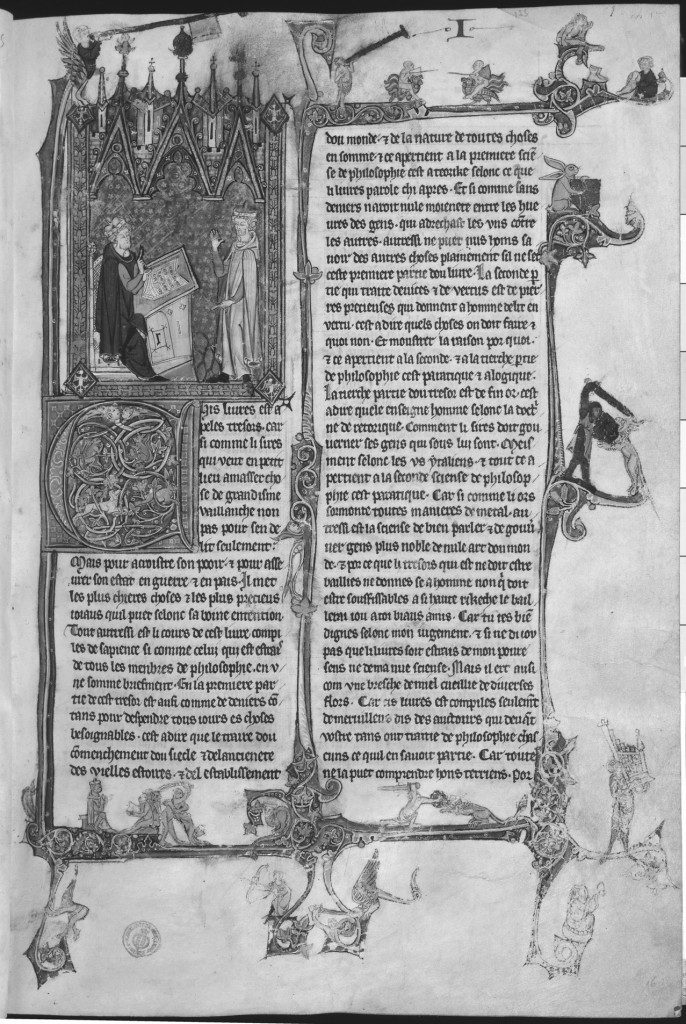 I
Cis livres est a
peles tresors. car
si comme li sires
qui veut en petit
lieu amasser cho
se de grandisme
vaillanche non
pas pour sen de
lit seulement:
Mais pour acroistre son pooir. & pour asse
urer son estat en guerre & en pais. Il met
les plus chieres choses & les plus precieus
ioiaus quil puet selonc sa boine entention.
Tout autressi est li cours de cest livre compi
les de sapience si comme celui qui est estrais
de tous les menbres de philosophie. en v
ne somme briefment. En la premiere par
tie de cest tresor est ausi comme de deniers cō
tans pour despendre tous iours es choses
besoignables. cest a dire que le traite dou
cōmenchement dou siecle & delanciente
des vielles estoires. & del establissement
dou monde. & de la nature de toutes choses
en somme. & ce apertient a la premiere scie
se de philosophie cest a teorike selonc ce que
li livres parole chi apres. Et si comme sans
deniers naroit nule moienete entre les hue
vres des gens. qui adrechast les uns cōtre
les autres. autressi ne puet nus hons sa
voir des autres choses plainement sil ne set
ceste premiere partie dou livre. La seconde p
tie qui traite devices & de vertus est de pier
res precieuses qui donnent a homme delit en
vertu. cest a dire quels choses on doit faire &
quoi non. Et moustrer la raison por quoi.
& ce apertient a la seconde. & a la tierche ptie
de philosophie cest pratique & a logique.
La tierche partie dou tresor est de fin or. cest
a dire quele enseigne homme selonc la doctr
ne de retorique. Comment li sires doit gou
uerner ses gens qui sous lui sont. Meis
ment selonc les us ytaliens. & tout ce a
pertient a la seconde sciense de philosop
phie cest pratique. Car si comme li ors
sormonte toutes manieres de metal. au
tressi est la sciense de bien parler & de gouv
ner gens plus noble de nule art dou mon
de. & por ce que li tresors qui est ne doit estre
baillies ne donnes se a homme non q̄ doit
estre souffissables a si haute rikeche le bail
lerai iou a toi biaus amis. Car tu ies biē
dignes selonc mon iugement. & si ne di iou
pas que li livres soit estrais de mon povre
sens ne de ma nue sciense. Mais il ert ausi
com une bresche de miel cueillie de diverses
flors. Car cis livres est compiles seulemt
de mervilleus dis des auctours qui devāt
vostre tans ont traitie de philosophie chas
cuns ce quil en savoit partie. Car toute
ne la puet comprendre hons terriens. Por